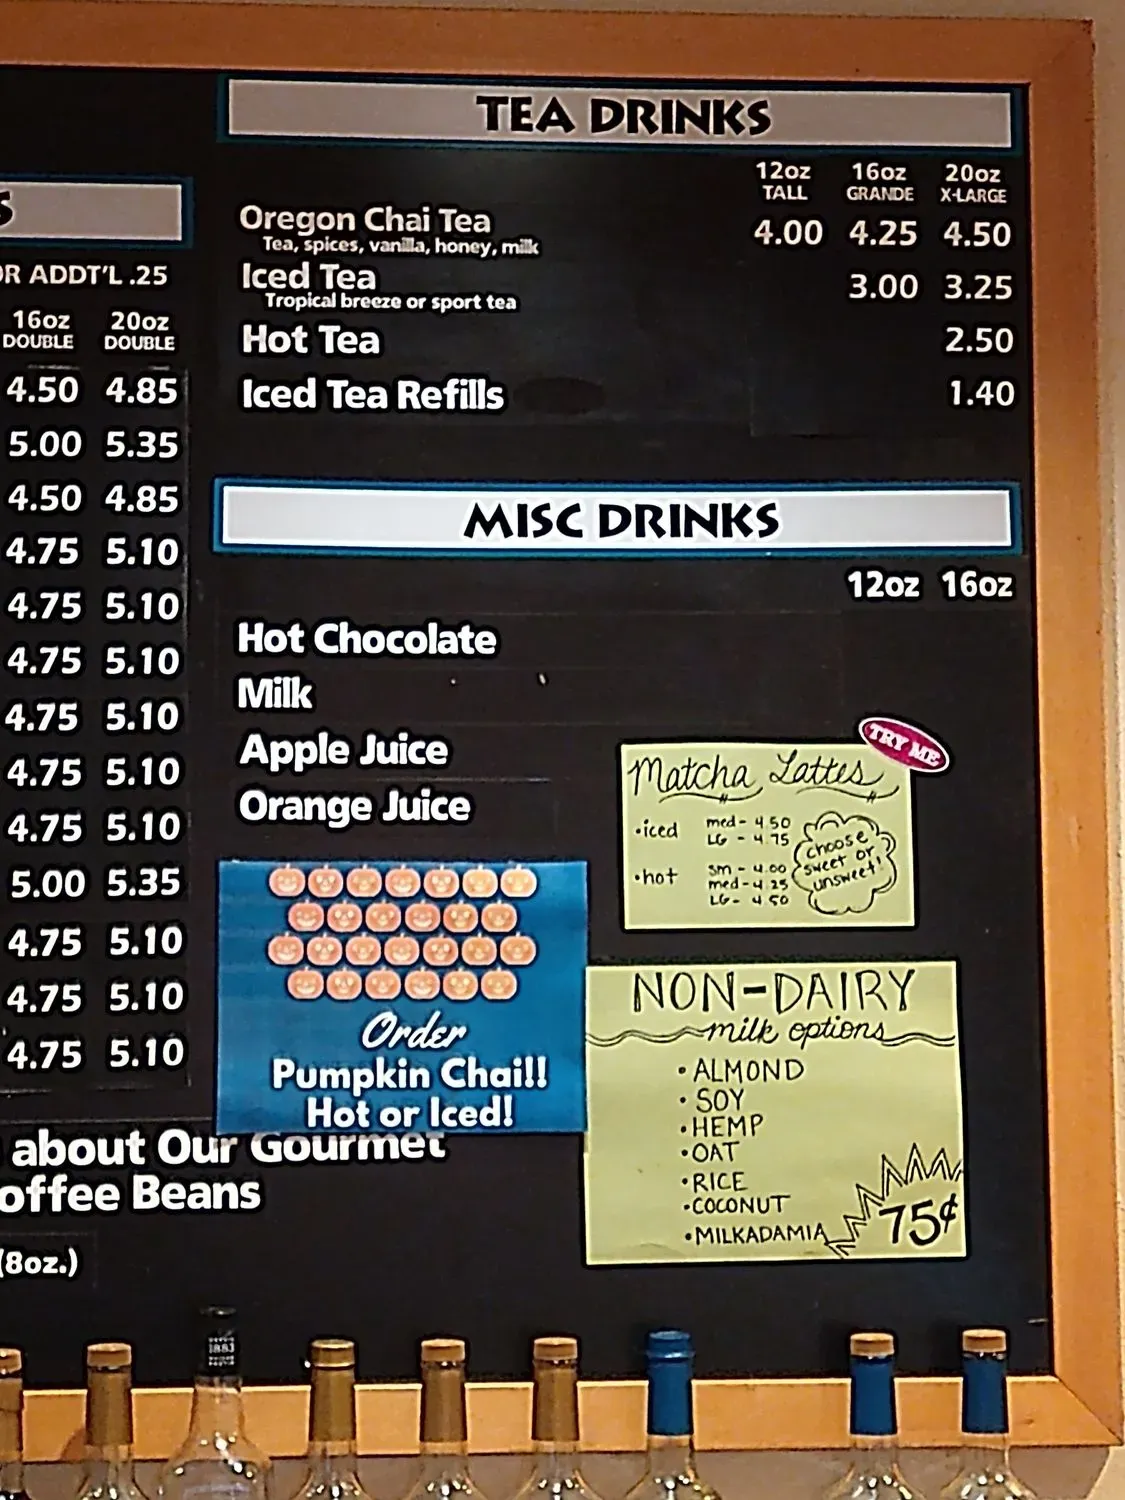 TEA DRINKS
12oz 16oz 20oz
TALL GRANDE X-LARGE
Oregon Chai Tea 4.00 4.25 4.50
Tea, spices, vanilla, honey, milk
Iced Tea 3.00 3.25
Tropical breeze or sport tea
Hot Tea 2.50
Iced Tea Refills 1.40
S
OR ADDT'L .25
16oz 20oz
DOUBLE DOUBLE
4.50 4.85
5.00 5.35
4.50 4.85
4.75 5.10
4.75 5.10
4.75 5.10
4.75 5.10
4.75 5.10
4.75 5.10
5.00 5.35
4.75 5.10
4.75 5.10
4.75 5.10
about Our Gourmet
offee Beans
(8oz.)
MISC DRINKS
12oz 16oz
Hot Chocolate
Milk
Apple Juice
Orange Juice
TRY ME
Matcha Lattes
•iced med - 4.50
LG - 4.75
•hot sm - 4.00
med - 4.25
LG - 4.50
choose
sweet or
unsweet!
Order
Pumpkin Chai!!
Hot or Iced!
NON-DAIRY
milk options
•ALMOND
•SOY
•HEMP
•OAT
•RICE
•COCONUT
•MILKADAMIA
75¢
1883